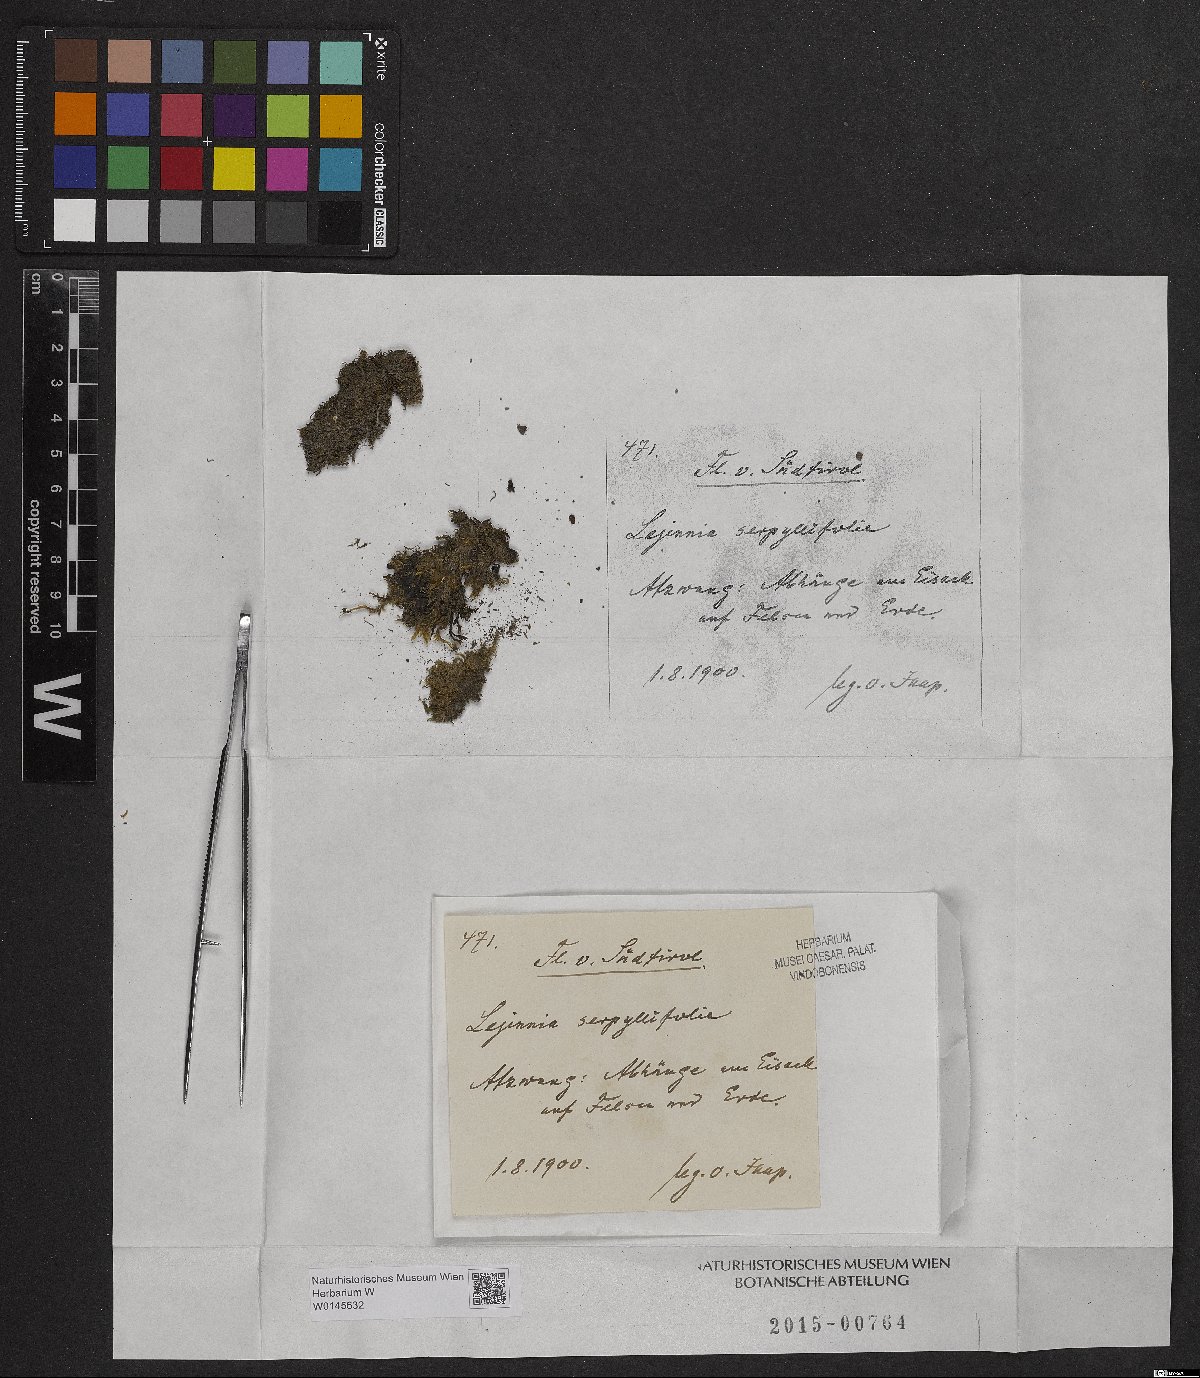 xrite
colorchecker CLASSIC
cm
0 1 2 3 4 5 6 7 8 9 10
copyright reserved
W
471.
Fl. v. Südtirol
Lejeunia serpyllifolia
Atzwang: Abhänge am Eisack
auf Felsen und Erde.
1.8.1900.
leg. O. Jaap.
471.
Fl. v. Südtirol
HERBARIUM
MUSEI CAESAR. PALAT.
VINDOBONENSIS
Lejeunia serpyllifolia
Atzwang: Abhänge am Eisack
auf Felsen und Erde.
1.8.1900.
leg. O. Jaap.
NATURHISTORISCHES MUSEUM WIEN
BOTANISCHE ABTEILUNG
2015-00764
Naturhistorisches Museum Wien
Herbarium W
W0145632